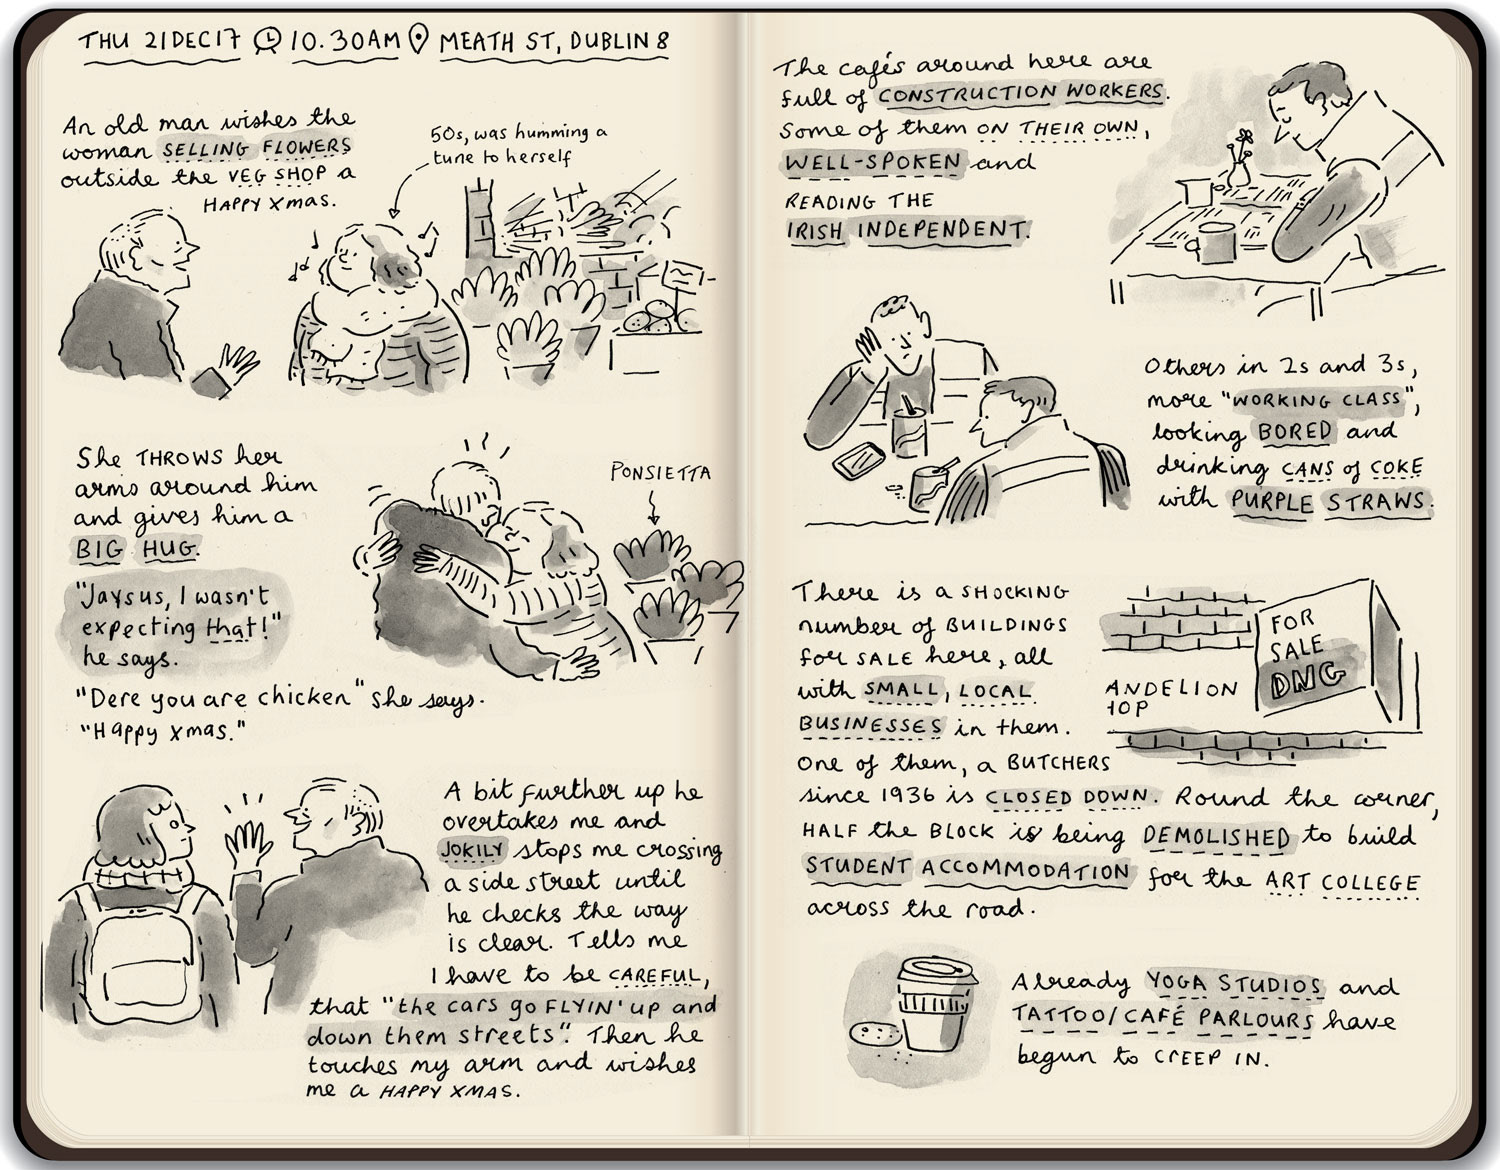 THU 21DEC17 10.30AM MEATH ST, DUBLIN 8
An old man wishes the
woman SELLING FLOWERS
outside the VEG SHOP a
HAPPY Xmas.
50s, was humming a
tune to herself
She THROWS her
arms around him
and gives him a
BIG HUG.
"Jaysus, I wasn't
expecting that!"
he says.
"Dere you are chicken" she says.
"Happy Xmas."
PONSIETTA
A bit further up he
overtakes me and
JOKILY stops me crossing
a side street until
he checks the way
is clear. Tells me
I have to be CAREFUL,
that "the cars go FLYIN' up and
down them streets". Then he
touches my arm and wishes
me a HAPPY XMAS.
The cafés around here are
full of CONSTRUCTION WORKERS.
Some of them ON THEIR OWN,
WELL-SPOKEN and
READING THE
IRISH INDEPENDENT.
Others in 2s and 3s,
more "WORKING CLASS",
looking BORED and
drinking CANS of COKE
with PURPLE STRAWS.
There is a SHOCKING
number of BUILDINGS
for SALE here, all
with SMALL, LOCAL
BUSINESSES in them.
One of them, a BUTCHERS
since 1936 is CLOSED DOWN. Round the corner,
HALF the BLOCK is being DEMOLISHED to build
STUDENT ACCOMMODATION for the ART COLLEGE
across the road.
FOR
SALE
DNG
ANDELION
HOP
Already YOGA STUDIOS and
TATTOO/CAFÉ PARLOURS have
begun to CREEP IN.